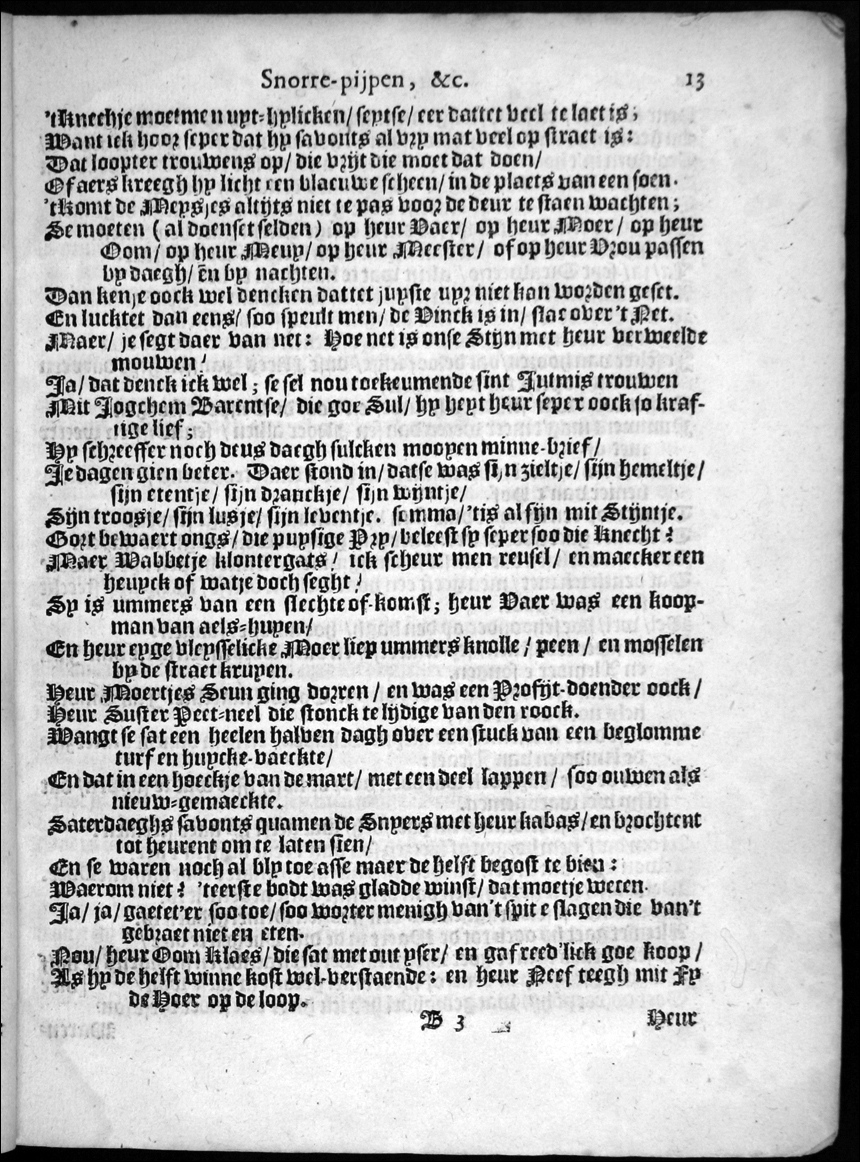 Snorre-pijpen, &c. 13
'tKneehje moetmen uyt-hylicken/ seytse/ eer dattet veel te laet is;
Want ick hoor seper dat hy savonts al vry mat veel op straet is:
Dat loopter trouwens op/ die vrijt die moet dat doen/
Of aers kreegh hy licht een blaeuwe scheen/ in de plaets van een soen.
'tkomt de Meysjes altijts niet te pas voor de deur te staen wachten;
Se moeten (al doenset selden) op heur Vaer/ op heur Moer/ op heur
Oom/ op heur Meuy/ op heur Meester/ of op heur Vrou passen
by daegh/ en̄ by nachten.
Dan kenje oock wel dencken dattet juyste uyr niet kan worden geset.
En lucktet dan eens/ soo speult men/ de Vinck is in/ slat over 't Net.
Maer/ je segt daer van net: Hoe net is onse Stijn met heur verweelde
mouwen!
Ja/ dat denck ick wel; se sel nou toekeumende sint Jutmis trouwen
Mit Jogchem Barentse/ die goe Sul/ hy heyt heur seper oock so kraf-
tige lief;
Hy schreeffer noch deus daegh sulcken mooyen minne-brief/
Je dagen gien beter. Daer stond in/ datse was sijn zieltje/ sijn hemeltje/
sijn etentje/ sijn dranckje/ sijn wijntje/
Sijn troosje/ sijn lusje/ sijn leventje. somma/ 'tis al sijn mit Stijntje.
Gort bewaert ongs/ die puysige Pry/ beleest sy seper soo die Knecht?
Maer Wabbetje klontergats! ick scheur men reusel/ en maecker een
heuyck of watje doch seght!
Sy is ummers van een slechte of-komst; heur Vaer was een koop-
man van aels-huyen/
En heur eyge vleysselicke Moer liep ummers knolle/ peen/ en mosselen
by de straet kruyen.
Heur Moertjes Seun ging dorren/ en was een Profijt-doender oock/
Heur Suster Peet-neel die stonck te lijdige van den roock.
Wangt se sat een heelen halven dagh over een stuck van een beglomme
turf en huycke-vaeckte/
En dat in een hoeckje van de mart/ met een deel lappen/ soo ouwen als
nieuw-gemaeckte.
Saterdaeghs savonts quamen de Snyers met heur kabas/ en brochtent
tot heurent om te laten sien/
En se waren noch al bly toe asse maer de helft begost te bien:
Waerom niet? 'teerste bodt was gladde winst/ dat moetje weten.
Ja/ ja/ gaetet'er soo toe/ soo worter menigh van't spit e slagen die van't
gebraet niet en eten.
Nou/ heur Oom Klaes/ die sat met out yser/ en gaf reed'lick goe koop/
As hy de helft winne kost wel-verstaende: en heur Neef teegh mit Fy
de Hoer op de loop.
B 3 Heur